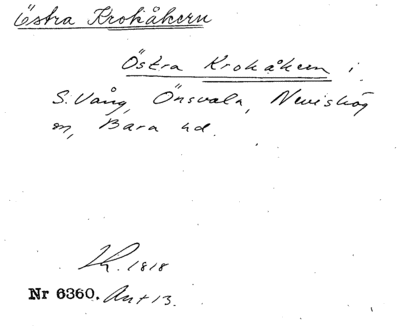 Östra Krokåkern
Östra Krokåkern i
S. Vång, Önsvala, Nevishög
sn, Bara hd.
Lk. 1818
Nr 6360. Akt 13.